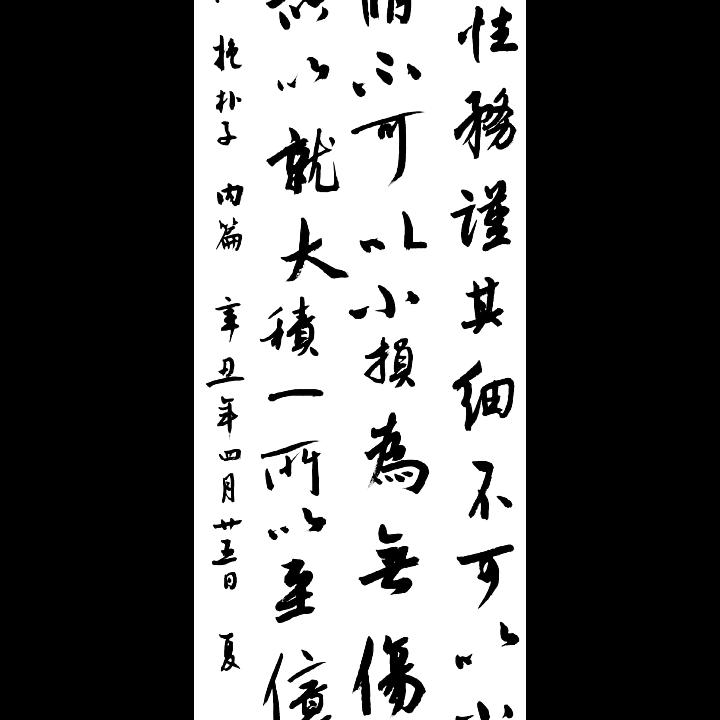 性務謹其細不可以小
不可以小損為無傷
以就大積一所以至億
抱朴子 內篇 辛丑年四月廿五日 夏